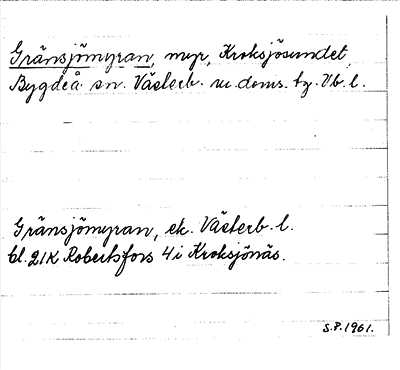 Gränsjömyran, myr, Kroksjösundet
Bygdeå sn. Västerb. m. doms. tg. Vb. l.
Gränsjömyran, ek. Västerb. l.
bl. 21K Robertsfors 4i Kroksjönäs.
S.P. 1961.